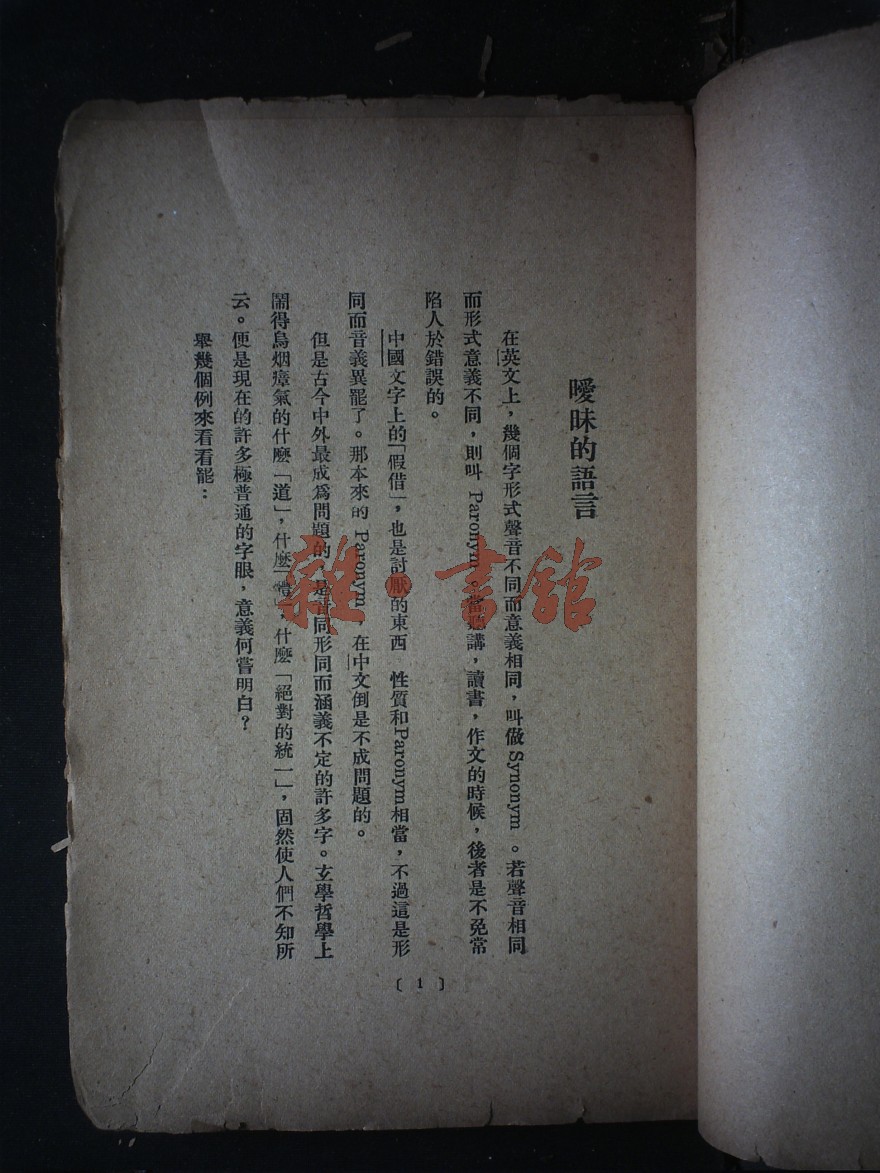 曖昧的語言
在英文上，幾個字形式聲音不同而意義相同，叫做Synonym。若聲音相同
而形式意義不同，則叫 Paronym。當聽講，讀書，作文的時候，後者是不免常
陷人於錯誤的。
中國文字上的「假借」，也是討厭的東西 性質和Paronym相當，不過這是形
同而音義異罷了。那本來的 Paronym 在中文倒是不成問題的。
但是古今中外最成爲問題的 是音同形同而涵義不定的許多字。玄學哲學上
鬧得烏烟瘴氣的什麼「道」，什麼「禮」，什麼「絕對的統一」，固然使人們不知所
云。便是現在的許多極普通的字眼，意義何嘗明白？
舉幾個例來看看罷：
〔 1 〕
雜·書館